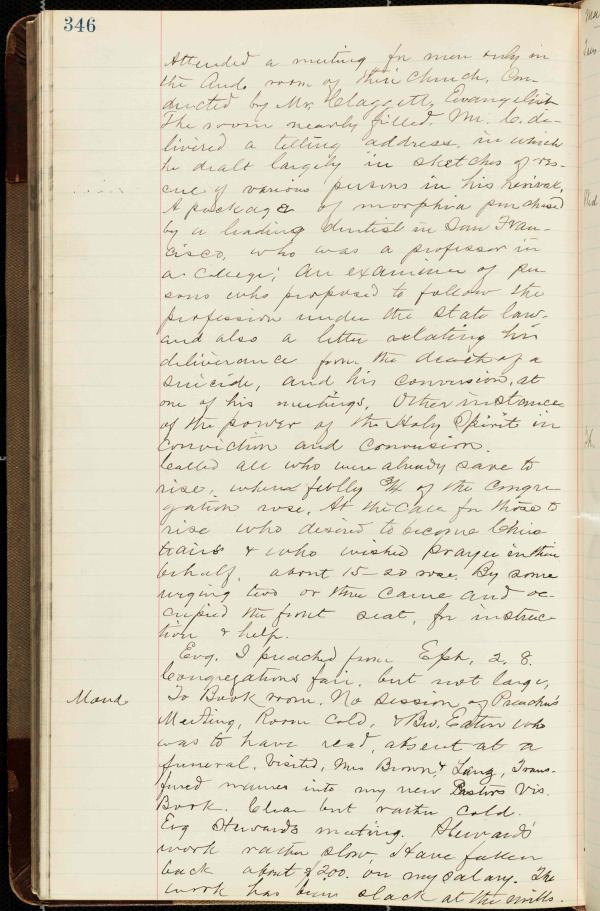 346
Attended a meeting for men only in
the Aud. room of their Church, Con-
ducted by Mr. Claggett, Evangelist.
The room nearly filled. Mr. C. de-
livered a telling address, in which
he dealt largely in sketches of res-
cue of various persons in his revival.
A package of morphia purchased
by a leading dentist in San Fran-
cisco, who was a professor in
a College; an examiner of per
sons who proposed to follow the
profession under the state law.
and also a letter relating his
deliverance from the death of a
suicide, and his conversion, at
one of his meetings. Other instances
of the power of the Holy Spirit in
conviction and conversion.
Called all who were already save to
rise, when fully 3/4 of the congre
gation rose. At the call for those to
rise who desired to become Chris
tians & who wished prayer in their
behalf, about 15-20 rose. By some
urging two or three came and oc-
cupied the front seat, for instruc
tion & help.
Evg. I preached from Eph. 2, 8.
Congregations fair, but not large,
Mond.
To Book room. No session of Preacher's
Meeting, Room cold, & Bro. Eaton who
was to have read, absent at a
funeral. Visited, Mrs Brown, & Lang, Trans-
fered names into my new Pastors Vis.
Book. Clear but rather cold.
Evg Steward's meeting. Steward's
work rather slow, Have fallen
back about $200. on my salary. The
work has been slack at the mills.